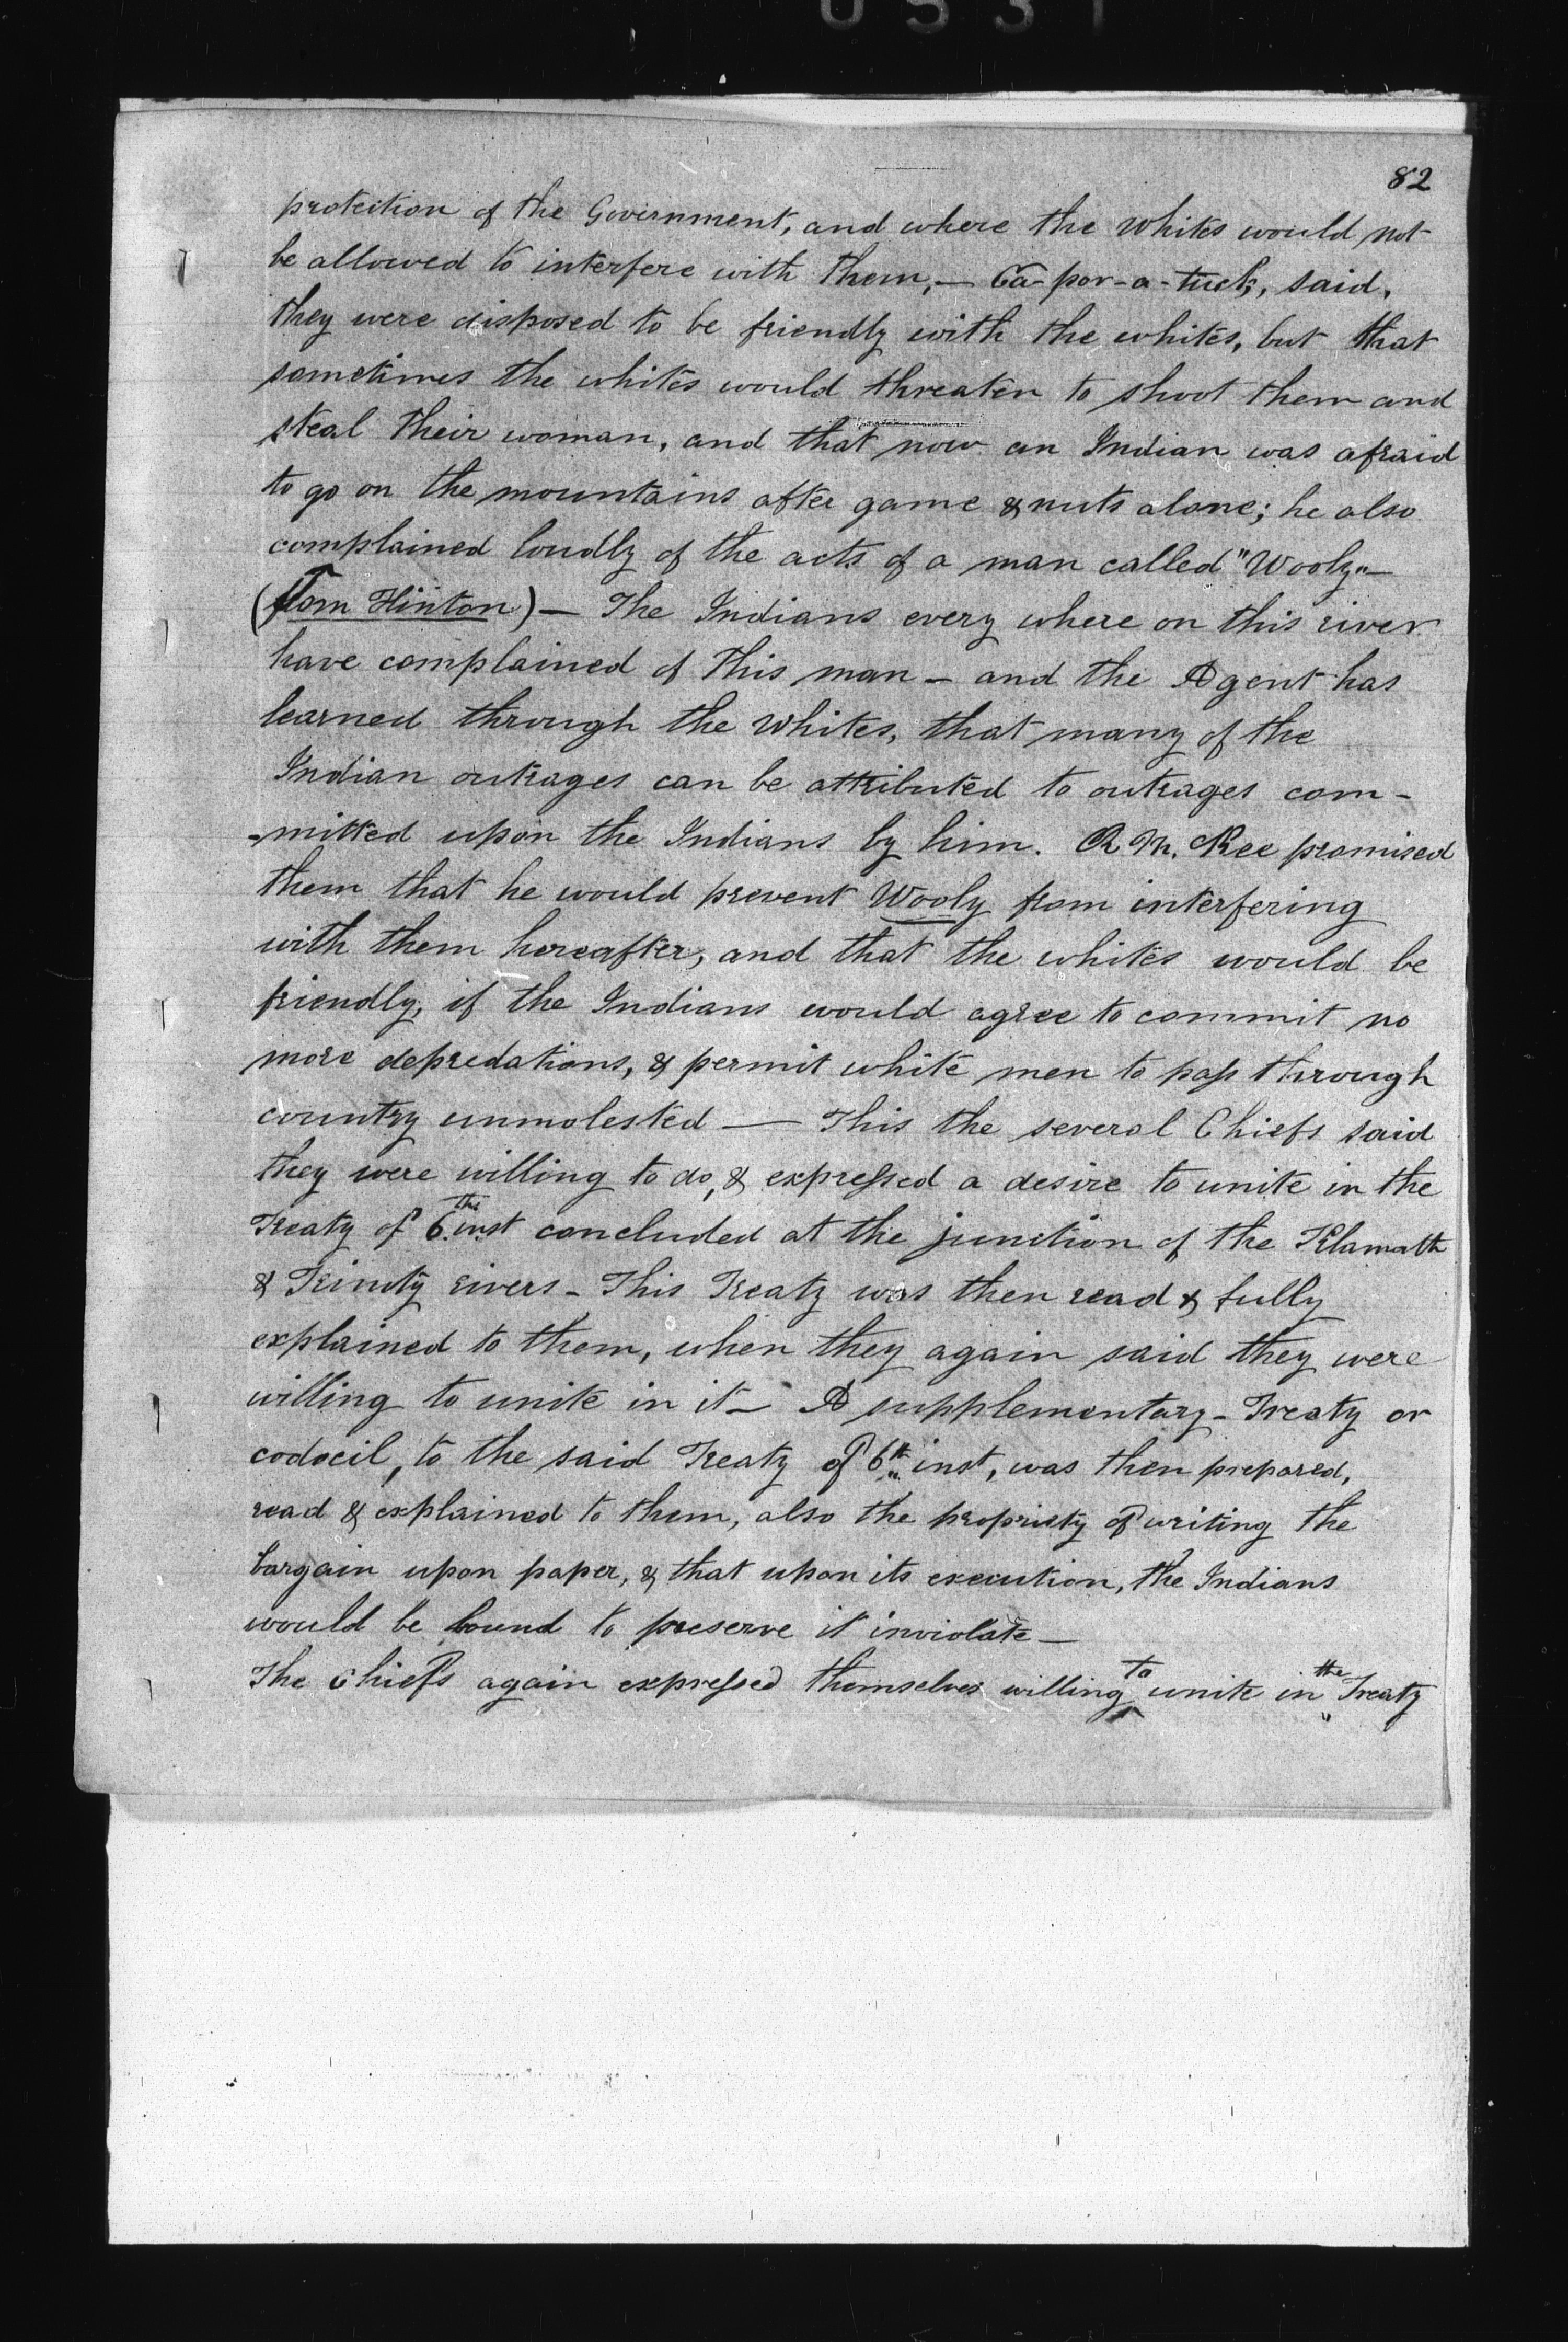 82
protection of the Government, and where the whites would not
be allowed to interfere with them,— Ca-por-a-tuck, said,
they were disposed to be friendly with the whites, but that
sometimes the whites would threaten to shoot them and
steal their woman, and that now an Indian was afraid
to go on the mountains after game & nuts alone; he also
complained loudly of the acts of a man called "Wooly"—
(Tom Hinton)— The Indians every where on this river
have complained of this man — and the Agent has
learned through the whites, that many of the
Indian outrages can be attributed to outrages com-
-mitted upon the Indians by him. R. McKee promised
them that he would prevent Wooly from interfering
with them hereafter, and that the whites would be
friendly, if the Indians would agree to commit no
more depredations, & permit white men to pass through
country unmolested — This the several Chiefs said
they were willing to do, & expressed a desire to unite in the
Treaty of 6th inst concluded at the junction of the Klamath
& Trinity rivers — This Treaty was then read & fully
explained to them, when they again said they were
willing to unite in it — A supplementary-Treaty or
codocil, to the said Treaty of 6th inst, was then prepared,
read & explained to them, also the propriety of writing the
bargain upon paper, & that upon its execution, the Indians
would be bound to preserve it inviolate —
The Chiefs again expressed themselves willing to unite in the Treaty